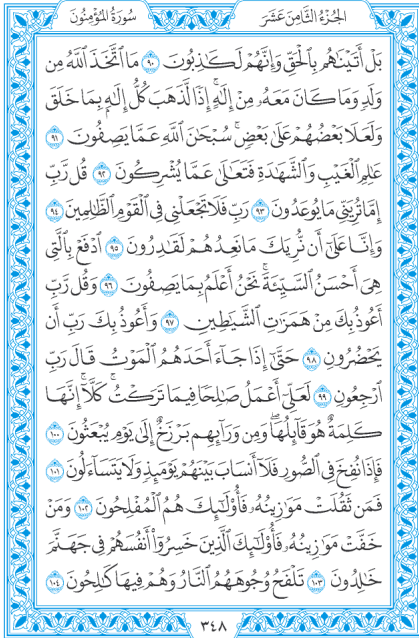 الجُزْءُ الثَّامِنَ عَشَرَ
سُورَةُ المُؤْمِنُونَ
بَلْ أَتَيْنَٰهُم بِٱلْحَقِّ وَإِنَّهُمْ لَكَٰذِبُونَ ٩٠ مَا ٱتَّخَذَ ٱللَّهُ مِن
وَلَدٖ وَمَا كَانَ مَعَهُۥ مِنْ إِلَٰهٍۚ إِذٗا لَّذَهَبَ كُلُّ إِلَٰهِۭ بِمَا خَلَقَ
وَلَعَلَا بَعْضُهُمْ عَلَىٰ بَعْضٖۚ سُبْحَٰنَ ٱللَّهِ عَمَّا يَصِفُونَ ٩١
عَٰلِمِ ٱلْغَيْبِ وَٱلشَّهَٰدَةِ فَتَعَٰلَىٰ عَمَّا يُشْرِكُونَ ٩٢ قُل رَّبِّ
إِمَّا تُرِيَنِّي مَا يُوعَدُونَ ٩٣ رَبِّ فَلَا تَجْعَلْنِي فِي ٱلْقَوْمِ ٱلظَّٰلِمِينَ ٩٤
وَإِنَّا عَلَىٰٓ أَن نُّرِيَكَ مَا نَعِدُهُمْ لَقَٰدِرُونَ ٩٥ ٱدْفَعْ بِٱلَّتِي
هِيَ أَحْسَنُ ٱلسَّيِّئَةَۚ نَحْنُ أَعْلَمُ بِمَا يَصِفُونَ ٩٦ وَقُل رَّبِّ
أَعُوذُ بِكَ مِنْ هَمَزَٰتِ ٱلشَّيَٰطِينِ ٩٧ وَأَعُوذُ بِكَ رَبِّ أَن
يَحْضُرُونِ ٩٨ حَتَّىٰٓ إِذَا جَآءَ أَحَدَهُمُ ٱلْمَوْتُ قَالَ رَبِّ
ٱرْجِعُونِ ٩٩ لَعَلِّيٓ أَعْمَلُ صَٰلِحٗا فِيمَا تَرَكْتُۚ كَلَّآۚ إِنَّهَا
كَلِمَةٌ هُوَ قَآئِلُهَاۖ وَمِن وَرَآئِهِم بَرْزَخٌ إِلَىٰ يَوْمِ يُبْعَثُونَ ١٠٠
فَإِذَا نُفِخَ فِي ٱلصُّورِ فَلَآ أَنسَابَ بَيْنَهُمْ يَوْمَئِذٖ وَلَا يَتَسَآءَلُونَ ١٠١
فَمَن ثَقُلَتْ مَوَٰزِينُهُۥ فَأُو۟لَٰٓئِكَ هُمُ ٱلْمُفْلِحُونَ ١٠٢ وَمَنْ
خَفَّتْ مَوَٰزِينُهُۥ فَأُو۟لَٰٓئِكَ ٱلَّذِينَ خَسِرُوٓا۟ أَنفُسَهُمْ فِي جَهَنَّمَ
خَٰلِدُونَ ١٠٣ تَلْفَحُ وُجُوهَهُمُ ٱلنَّارُ وَهُمْ فِيهَا كَٰلِحُونَ ١٠٤
٣٤٨